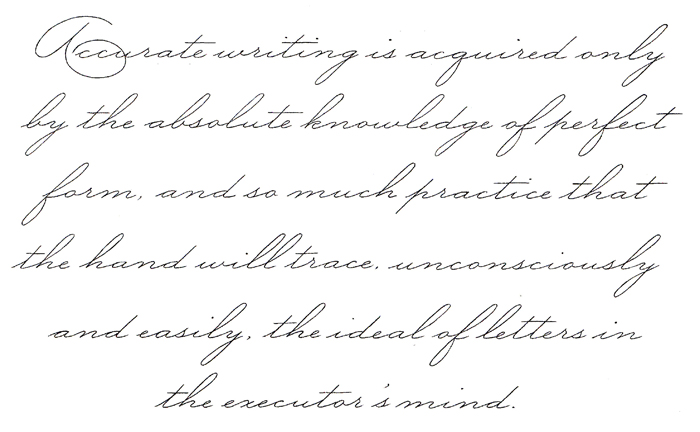 Accurate writing is acquired only
by the absolute knowledge of perfect
form, and so much practice that
the hand will trace, unconsciously
and easily, the ideal of letters in
the executor's mind.